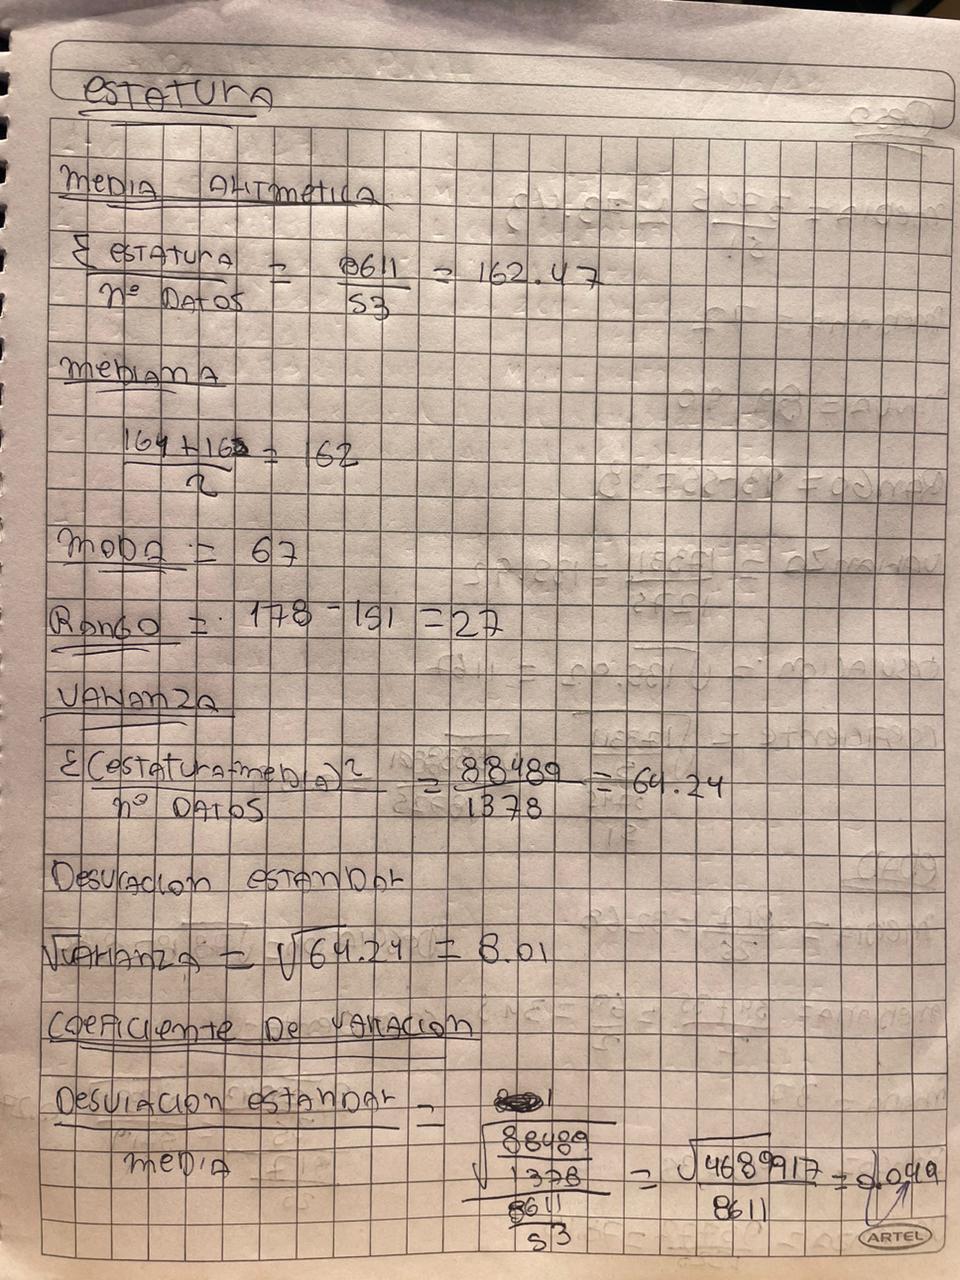 ESTATURA
MEDIA ARITMETICA
Σ ESTATURA / nº DATOS = 8611 / 53 = 162.47
MEDIANA
164 + 16 / 2 = 162
MODA = 67
RANGO = 178 - 151 = 27
VARIANZA
Σ(estatura-media)² / nº DATOS = 88489 / 1378 = 64.24
Desviacion ESTANDAR
√VARIANZA = √64.24 = 8.01
COEFICIENTE DE VARIACION
DESVIACION ESTANDAR / MEDIA = √(88489 / 1378) / (8611 / 53) = √4689917 / 8611 = 0.049
ARTEL